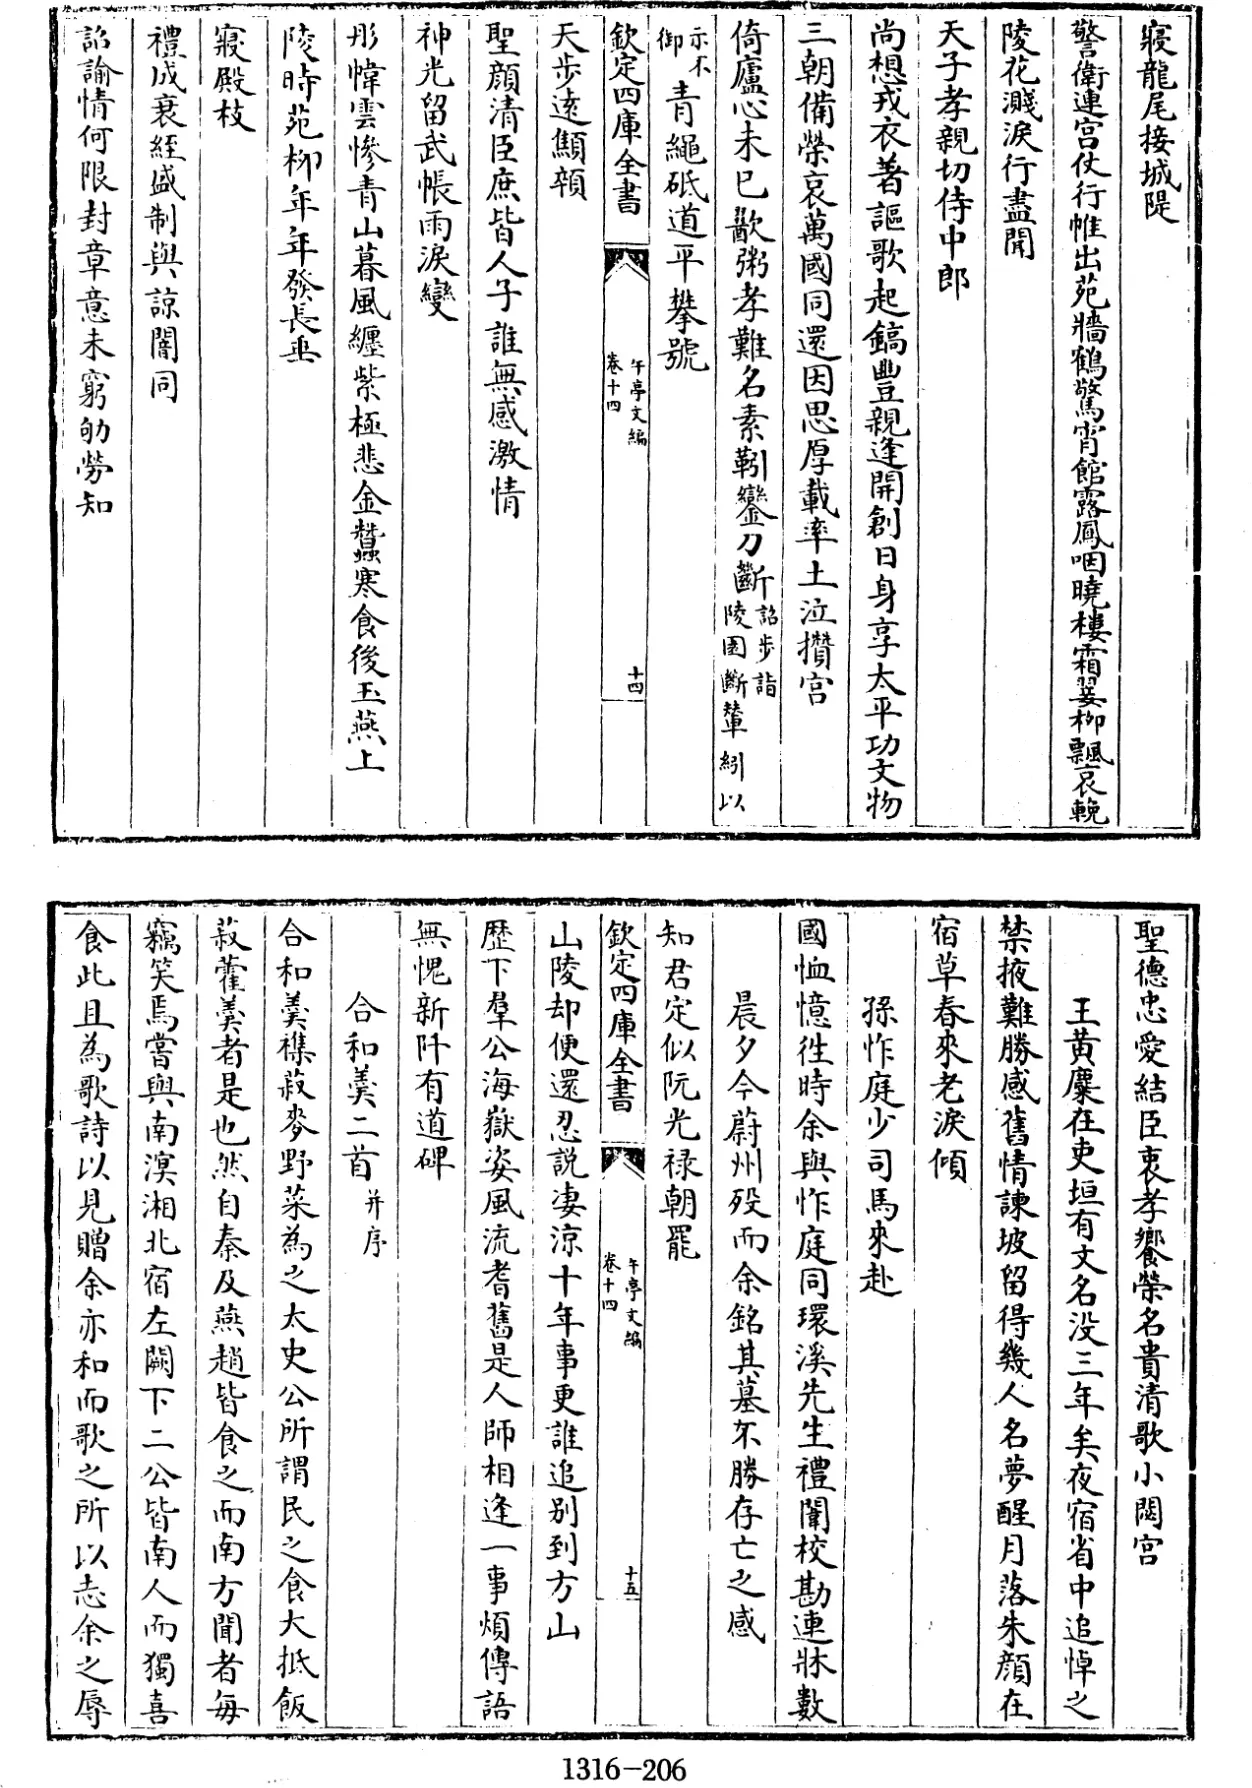 寢龍尾接城隄
警衛連宮仗行帷出苑牆鶴驚宵館露鳳咽曉樓霜翣栁飄哀輓
陵花濺淚行盡聞
天子孝親切侍中郎
尚想戎衣著謳歌起鎬豐親逢開創日身享太平功文物
三朝備榮哀萬國同還因思厚載率土泣攢宮
倚廬心未已歠粥孝難名素靷鑾刀斷詔步詣陵園斷輦紖以
示不御青繩砥道平攀號
欽定四庫全書
午亭文編
卷十四
十四
天步逺顒頟
聖顔清臣庶皆人子誰無感激情
神光留武帳雨淚變
彤幃雲慘青山暮風纏紫極悲金蠶寒食後玉燕上
陵時苑栁年年發長垂
寢殿枝
禮成衰絰盛制與諒闇同
詔諭情何限封章意未窮劬勞知
聖德忠愛結臣衷孝饗榮名貴清歌小閟宮
王黄麋在吏垣有文名没三年矣夜宿省中追悼之
禁掖難勝感舊情諫坡留得幾人名夢醒月落朱顔在
宿草春來老淚傾
孫怍庭少司馬來赴
國恤憶徃時余與怍庭同環溪先生禮闈校勘連牀數
晨夕今蔚州殁而余銘其墓不勝存亡之感
知君定似阮光禄朝罷
欽定四庫全書
午亭文編
卷十四
十五
山陵却便還忍説凄涼十年事更誰追别到方山
歴下羣公海嶽姿風流耆舊是人師相逢一事煩傳語
無愧新阡有道碑
合和羮二首并序
合和羮襍菽麥野菜為之太史公所謂民之食大抵飯
菽藿羮者是也然自秦及燕趙皆食之而南方聞者每
竊笑焉嘗與南溟湘北宿左闕下二公皆南人而獨喜
食此且為歌詩以見贈余亦和而歌之所以志余之辱
1316-206